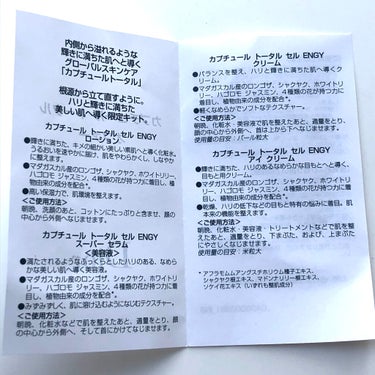 内側から溢れるような
輝きに満ちた肌へと導く
グローバルスキンケア
「カプチュールトータル」
根源から立て直すように。
ハリと輝きに満ちた
美しい肌へ導く限定キット。
カプチュール トータル セル ENGY
ローション
●輝きに満ちた、キメの細かい美しい肌へと導く化粧水。
うるおいを速やかに届け、肌をやわらかくし、しなやか
に整えます。
●マダガスカル産のロンゴザ、シャクヤク、ホワイトリ
リー、ハゴロモ ジャスミン、4種類の花が持つ力に着目し、植
物由来の成分を配合*。
●高い保湿力で、肌環境を整えます。
＜ご使用方法＞
朝晩、洗顔のあと、コットンにたっぷりと含ませ、顔の
中心から外側へなじませます。
カプチュール トータル セル ENGY
スーパー セラム
＜美容液＞
●満たされるようなふっくらとしたハリのある、なめら
かな美しい肌へ導く美容液。
●マダガスカル産のロンゴザ、シャクヤク、ホワイトリ
リー、ハゴロモ ジャスミン、4種類の花が持つ力に着目
し、植物由来の成分を配合*。
●みずみずしく、肌に溶け込むようになじむテクスチャー。
＜ご使用方法＞
朝晩、化粧水などで肌を整えたあと、適量をとり、顔の
中心から外側へ、そして首にかけてなじませます。
カプチュール トータル セル ENGY
クリーム
●バランスを整え、ハリと輝きに満ちた肌へ導くクリ
ーム。
●マダガスカル産のロンゴザ、シャクヤク、ホワイトリ
リー、ハゴロモ ジャスミン、4種類の花が持つ力に着
目し、植物由来の成分を配合*。
＜ご使用方法＞
朝晩、化粧水、美容液で肌を整えたあと、適量をとり、
顔の中心から外側へ、首は上から下へなじませます。
使用量の目安：パール粒大
カプチュール トータル セル ENGY
アイ クリーム
●輝きに満ちた、ハリのあるなめらかな目もとへと導く、
目もと用クリーム。
●マダガスカル産のロンゴザ、シャクヤク、ホワイトリ
リー、ハゴロモ ジャスミン、4種類の花が持つ力に着
目し、植物由来の成分を配合*。
●乾燥、ハリの低下などの目もと特有の悩みに着目。肌
本来の機能を整えます。
＜ご使用方法＞
朝晩、化粧水・美容液・トリートメントなどで肌を整え
たあと、適量をとり、下まぶた、および、上まぶたに
やさしくなじませます。
使用量の目安：米粒大
* アフラモムムアングスチホリウム種子エキス、
シャクヤク根エキス、マドンナリリー根エキス、
ソケイ花エキス（いずれも整肌成分）